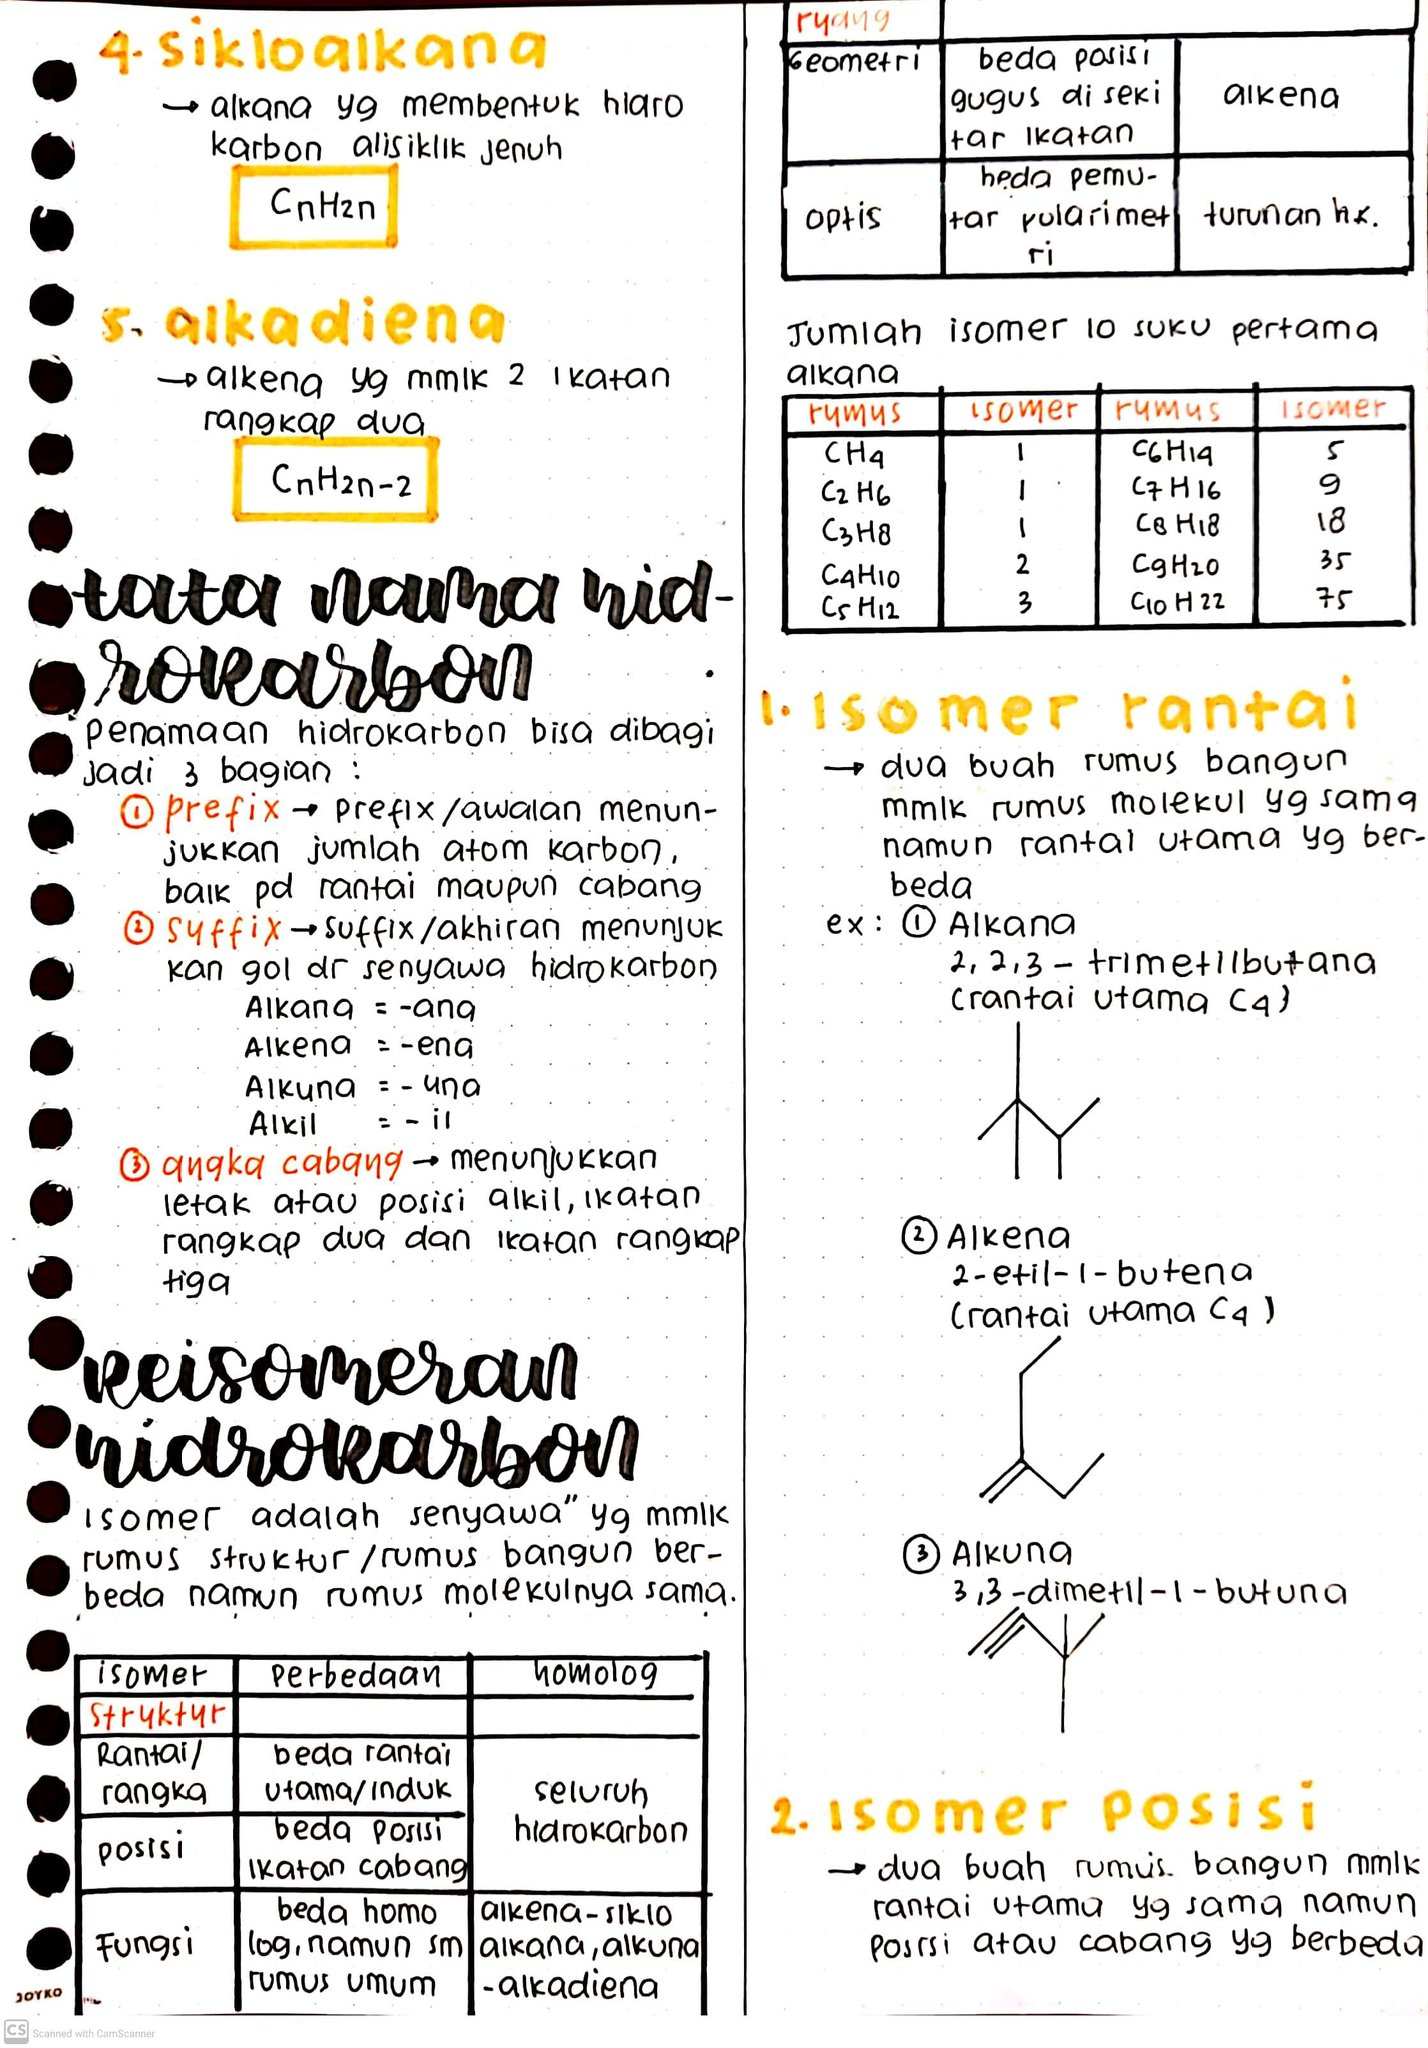 4. sikloalkana
→ alkana yg membentuk hidro
karbon alisiklik jenuh
CnH2n
5. alkadiena
→ alkena yg mmlk 2 ikatan
rangkap dua
CnH2n-2
tata nama hid-
rokarbon
Penamaan hidrokarbon bisa dibagi
jadi 3 bagian :
① prefix → prefix/awalan menun-
jukkan jumlah atom karbon,
baik pd rantai maupun cabang
② suffix → suffix/akhiran menunjuk
kan gol dr senyawa hidrokarbon
Alkana = -ana
Alkena = -ena
Alkuna = - una
Alkil = - il
③ angka cabang → menunjukkan
letak atau posisi alkil, ikatan
rangkap dua dan ikatan rangkap
tiga
keisomeran
hidrokarbon
Isomer adalah senyawa" yg mmlk
rumus struktur/rumus bangun ber-
beda namun rumus molekulnya sama.
isomer perbedaan homolog
struktur
Rantai/ beda rantai
rangka utama/induk seluruh
posisi beda posisi hidrokarbon
ikatan cabang
beda homo alkena-siklo
Fungsi log, namun sm alkana, alkuna
rumus umum -alkadiena
JOYKO
CS Scanned with CamScanner
ruang
Geometri beda posisi
gugus di seki alkena
tar ikatan
beda pemu-
optis tar polarimet turunan hk.
ri
Jumlah isomer 10 suku pertama
alkana
rumus isomer rumus isomer
CH4 1 C6H14 5
C2H6 1 C7H16 9
C3H8 1 C8H18 18
C4H10 2 C9H20 35
C5H12 3 C10H22 75
1. Isomer rantai
→ dua buah rumus bangun
mmlk rumus molekul yg sama
namun rantai utama yg ber-
beda
ex : ① Alkana
2,2,3 - trimetilbutana
(rantai utama C4)
② Alkena
2-etil-1-butena
(rantai utama C4)
③ Alkuna
3,3-dimetil-1-butuna
2. Isomer posisi
→ dua buah rumus bangun mmlk
rantai utama yg sama namun
posisi atau cabang yg berbeda